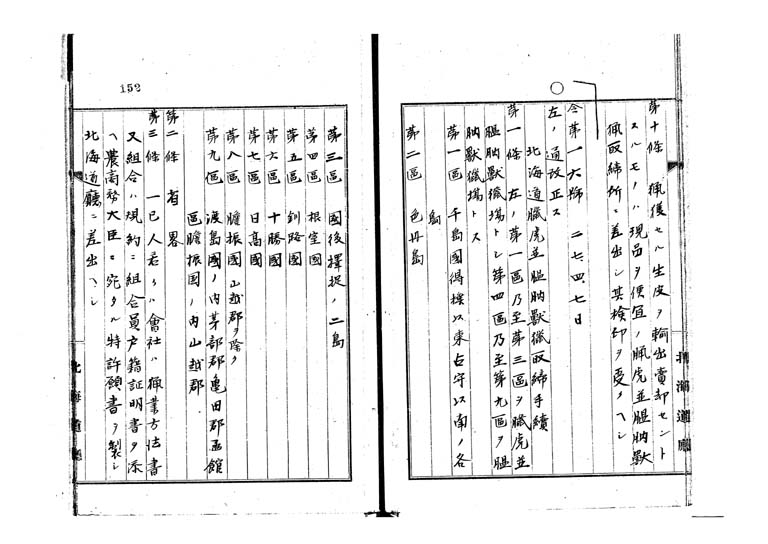 第十條 猟獲セル生皮ヲ輸出賣却セント
スルモノハ現品ヲ便宜ノ臘虎並膃肭獸
猟取締所ニ差出シ其検印ヲ受クヘシ
令第一六號 二七、四、七日
左ノ通改正ス
北海道臘虎並膃肭獸猟取締手續
第一條 左ノ第一區乃至第三區ヲ臘虎並
膃肭獸猟場トシ第四區乃至第九區ヲ膃
肭獸猟場トス
第一區 千島國得撫以東占守以南ノ各
島
第二區 色丹島
北海道廳
152
第三區 國後擇捉ノ二島
第四區 根室國
第五區 釧路國
第六區 十勝國
第七區 日高國
第八區 膽振國山越郡ヲ除ク
第九區 渡島國ノ内茅部郡亀田郡函館
區膽振國ノ内山越郡
第二條 省畧
第三條 一已人若クハ會社ハ猟業方法書
又組合ハ規約ニ組合員戸籍証明書ヲ添
ヘ農商務大臣ニ宛タル特許願書ヲ製シ
北海道廳ニ差出ヘシ
北海道廳